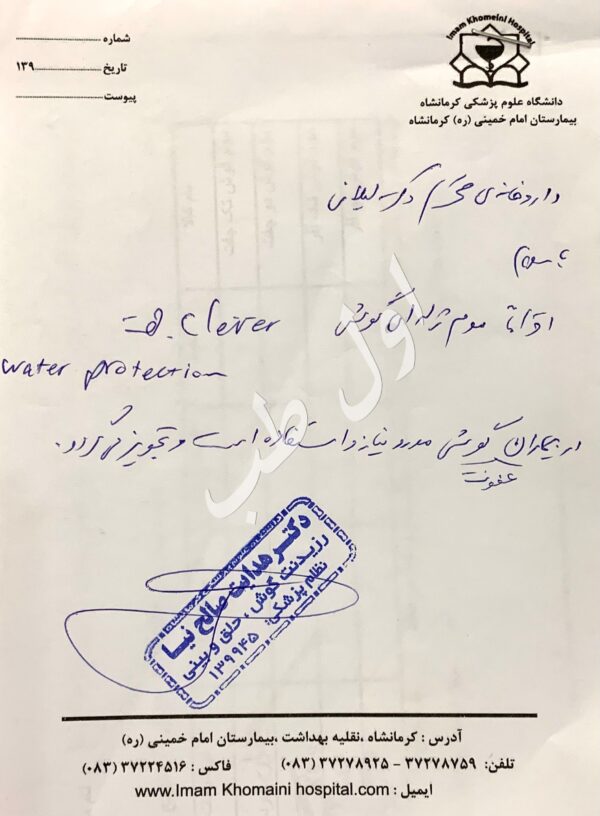 Imam Khomeini Hospital
دانشگاه علوم پزشکی کرمانشاه
بیمارستان امام خمینی (ره) کرمانشاه
شماره
تاریخ ۱۳۹
پیوست
داروخانه‌ی محترم دکتر گیلانی
با سلام
موم ژله‌ای گوش
Clever
water protection
در بیماران گوشی مورد نیاز و استفاده است و تجویز می گردد.
عفونت
اول طب
دکتر هدایت صالح نیا
رزیدنت گوش ، حلق و بینی
نظام پزشکی: ۱۳۹۹۴۵
آدرس : کرمانشاه ،نقلیه بهداشت ،بیمارستان امام خمینی (ره)
تلفن: ۳۷۲۷۸۷۵۹ - ۳۷۲۷۸۹۲۵ (۰۸۳) فاکس : ۳۷۲۲۴۵۱۶ (۰۸۳)
ایمیل : www.Imam Khomaini hospital.com